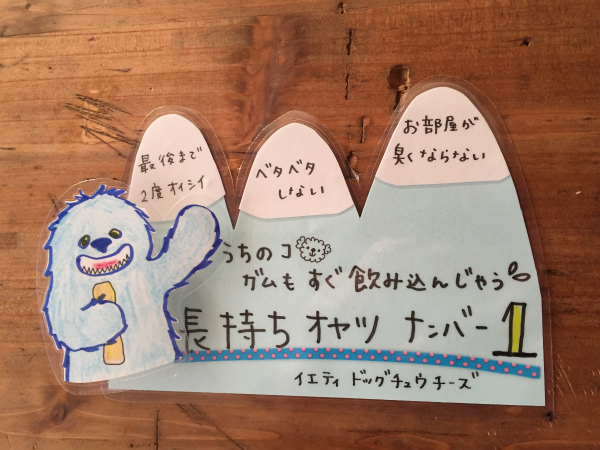 最後まで
2度オイシイ
ベタベタ
しない
お部屋が
臭くならない
うちのコ
ガムもすぐ飲み込んじゃう
長持ちオヤツ ナンバー1
イエティ ドッグチュウチーズ